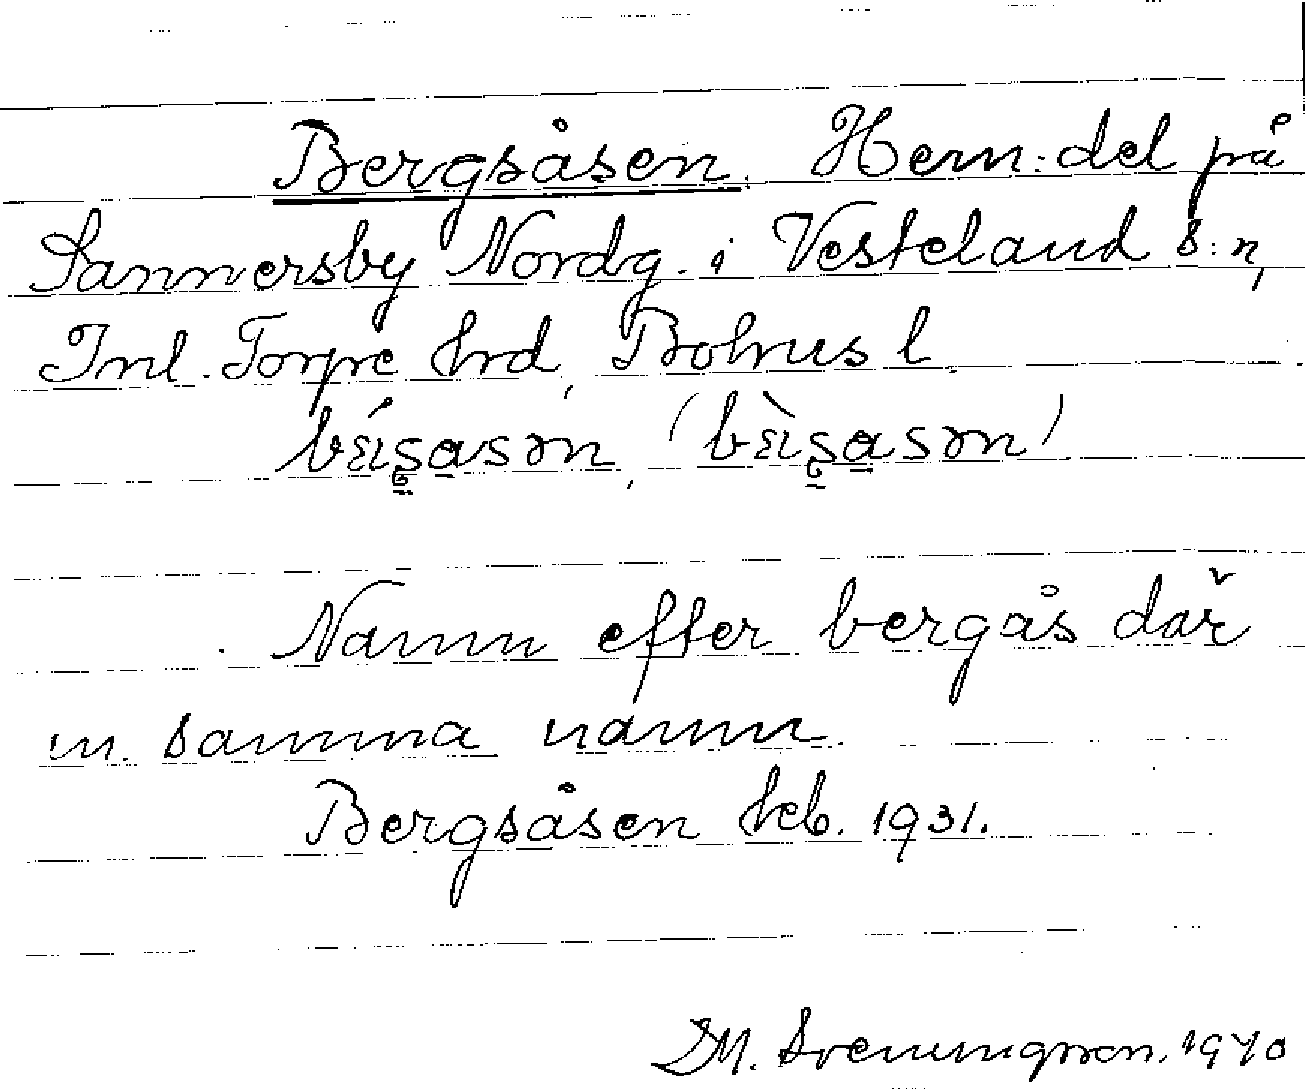 Bergsåsen. Hem: del på
Sannersby Nordg. i Vesteland s:n,
Inl. Torpe hrd, Bohus l.
Namn efter bergås där
m. samma namn.
Bergsåsen keb. 1931.
SM. Svenungsson. 1970